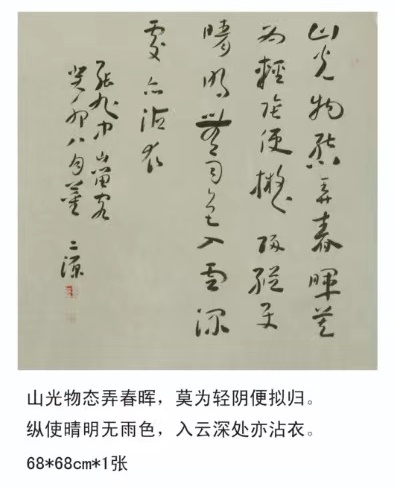 山光物態弄春暉莫
为輕陰便擬歸縱使
晴明無雨色入雲深
處亦沾衣
張旭中山留客
癸卯八月 二源
山光物态弄春晖，莫为轻阴便拟归。
纵使晴明无雨色，入云深处亦沾衣。
68*68cm*1张